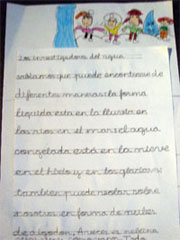 Los investigadores del agua
sabemos que puede encontrarse de
diferentes maneras la forma
liquida esta en la lluvia en
los rios en el mar el agua
congelada está en la nieve
en el hielo y en los glaciares
tambien puede volar sobre
nosotros en forma de nubes
de algodon,